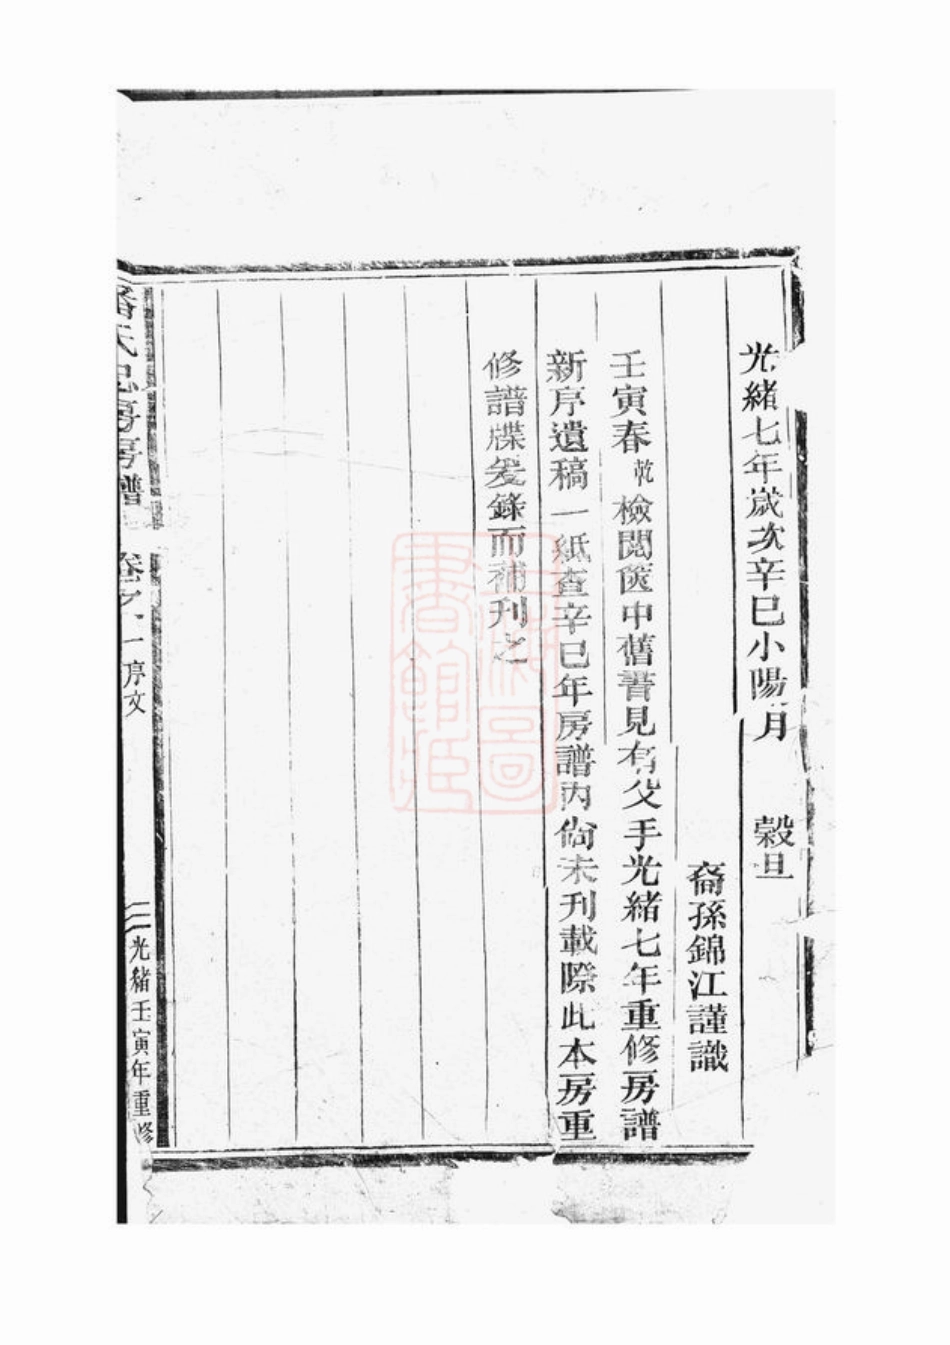 光緒七年歲次辛巳小陽月 穀旦
裔孫錦江謹識
壬寅春乾檢閱篋中舊書見有父手光緒七年重修房譜
新序遺稿一紙查辛巳年房譜內尙未刊載際此本房重
修譜牒爰錄而補刊之
潘氏忠房房譜
卷之一 序文
二
光緒壬寅年重修